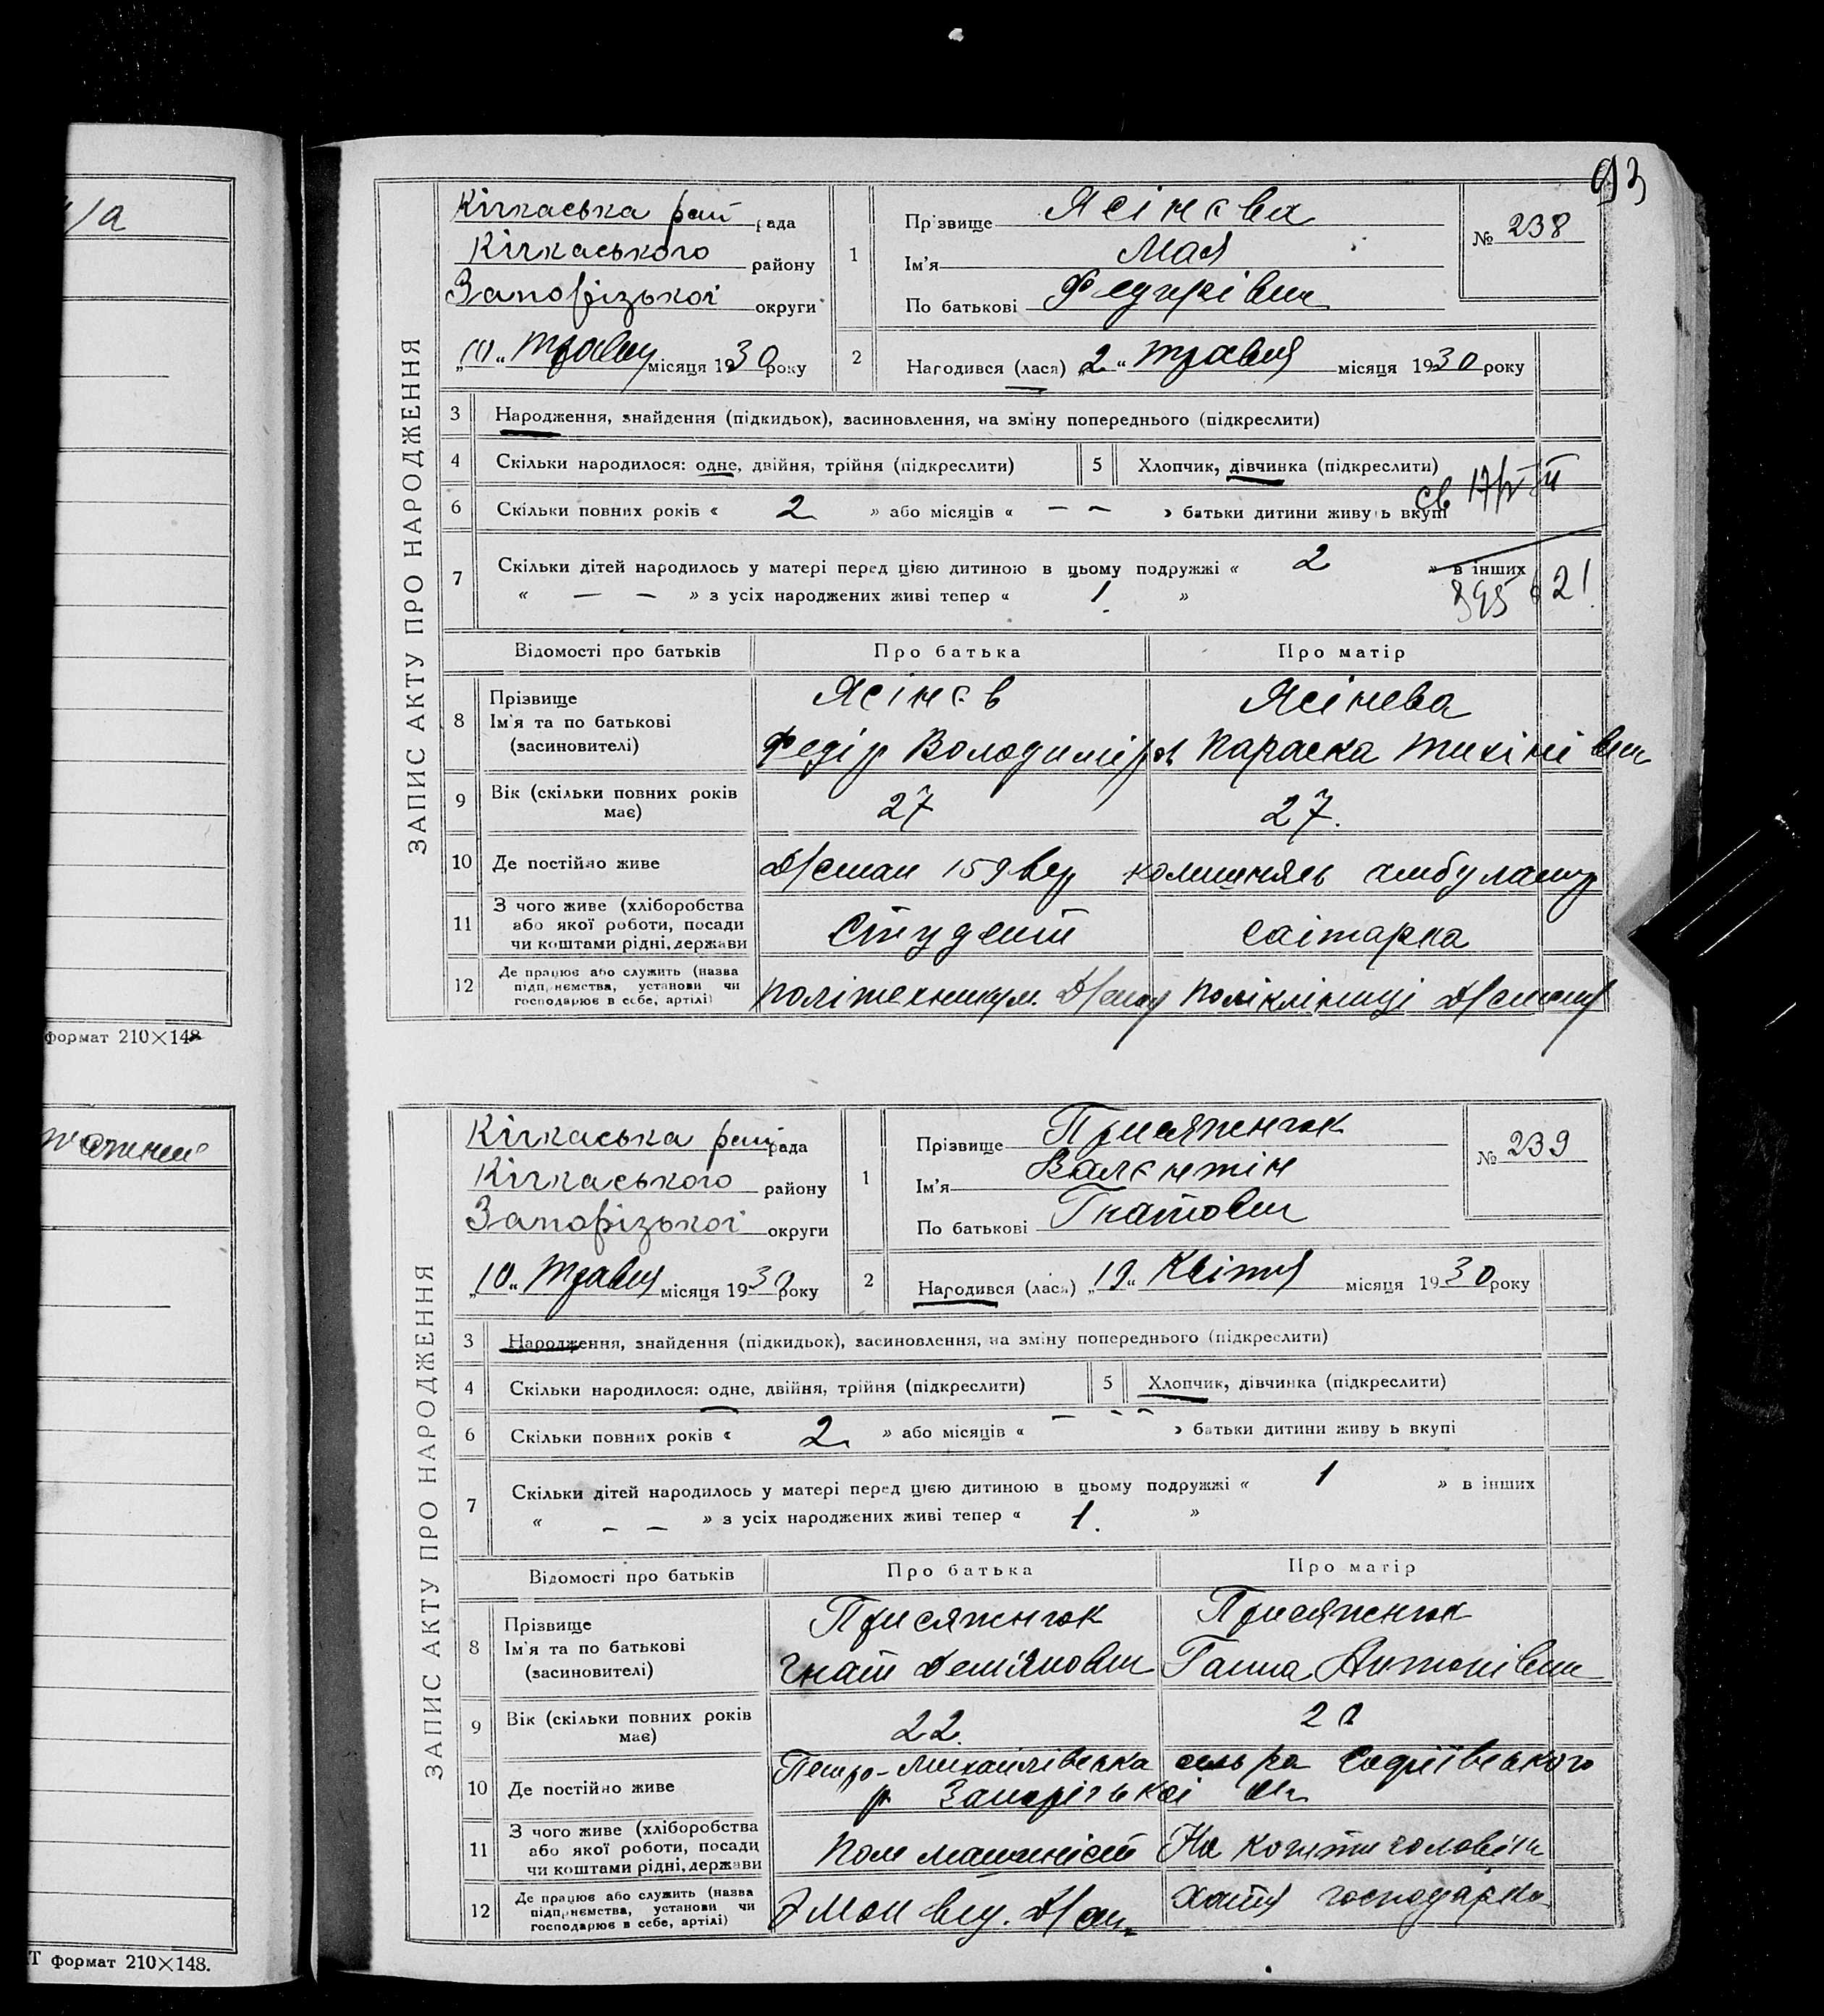 93
ЗАПИС АКТУ ПРО НАРОДЖЕННЯ
Кічкаська рай рада
Кічкаського району
Запорізької округи
„10“ травня місяця 1930 року
1
Прізвище Ясінєва
Ім'я Мая
По батькові Федорівни
№ 238
2
Народився (лася) „2“ травня місяця 1930 року
3 Народження, знайдення (підкидьок), засиновлення, на зміну попереднього (підкреслити)
4 Скільки народилося: одне, двійня, трійня (підкреслити)
5 Хлопчик, дівчинка (підкреслити)
6 Скільки повних років « 2 » або місяців « — — » батьки дитини живуть вкупі
св
7 Скільки дітей народилось у матері перед цією дитиною в цьому подружжі « 2 » в інших
« — — » з усіх народжених живі тепер « 1. »
Відомості про батьків Про батька Про матір
8 Прізвище
Ім'я та по батькові
(засиновителі)
Ясінєв
Федір Володимиров
Ясінева
Параска Тихінівни
9 Вік (скільки повних років має) 27 27.
10 Де постійно живе Д/стан 159 амбулатор
11 З чого живе (хліборобства або якої роботи, посади чи коштами рідні, держави
Студент санітарка
12 Де працює або служить (назва підприємства, установи чи господарює в себе, артілі)
Політехникум. Д/стан Поліклініці Д/стану
формат 210×148
ЗАПИС АКТУ ПРО НАРОДЖЕННЯ
Кічкаська рай рада
Кічкаського району
Запорізької округи
„10“ травня місяця 1930 року
1
Прізвище Присяженюк
Ім'я Валєнтін
По батькові Гнатович
№ 239
2
Народився (лася) „19“ Квітня місяця 1930 року
3 Народження, знайдення (підкидьок), засиновлення, на зміну попереднього (підкреслити)
4 Скільки народилося: одне, двійня, трійня (підкреслити)
5 Хлопчик, дівчинка (підкреслити)
6 Скільки повних років « 2 » або місяців « — — — » батьки дитини живуть вкупі
7 Скільки дітей народилось у матері перед цією дитиною в цьому подружжі « 1 » в інших
« — — » з усіх народжених живі тепер « 1. »
Відомості про батьків Про батька Про матір
8 Прізвище
Ім'я та по батькові
(засиновителі)
Присяженюк
Гнат Дем'янович
Присяженюк
Ганна Антонівни
9 Вік (скільки повних років має) 22.
10 Де постійно живе Петро-Михайлівська сельра Софіївського
р. Запорізької Ок
11 З чого живе (хліборобства або якої роботи, посади чи коштами рідні, держави
Пом машиніст На кошти чоловіка
12 Де працює або служить (назва підприємства, установи чи господарює в себе, артілі)
Д/стан. Хатня господарка
Т формат 210×148.